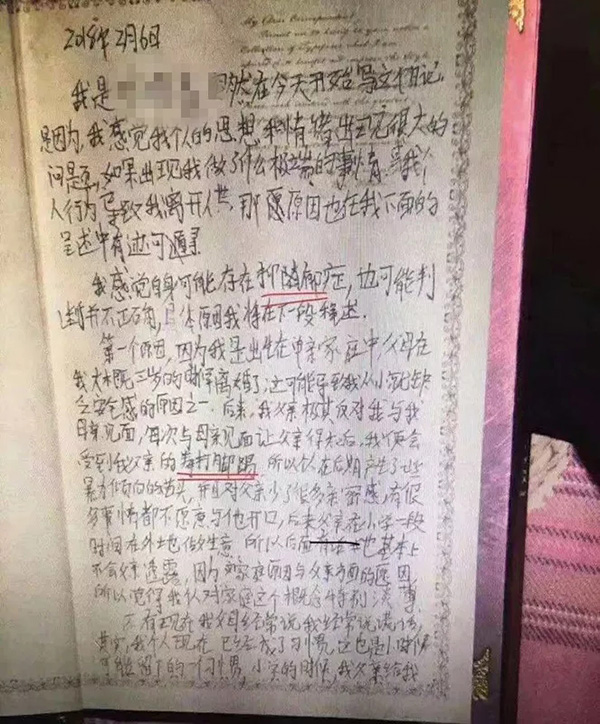 My Dear Correspondent
2018年2月6日
我是
然在今天开始写这份日记
是因为,我感觉我个人的思想和情绪出现很大的
问题,如果出现我做了什么极端的事情,
人行为导致我离开人世,那愿原因也在我下面的
呈述中有迹可遁寻
我感觉自身可能存在抑郁症,也可能判
断并不正确,具体原因我将在下一段称述.
第一个原因,因为我是出生在单亲家庭中,父母在
我大概三岁的时候离婚了,这可能导致我从小就缺
乏安全感的原因之一.后来,我父亲极其反对我与我
母亲见面,每次与母亲见面让父亲得知后,我便会
受到我父亲的拳打脚踢,所以在后期产生了些
暴力倾向的苗头,并且对父亲少了很多亲密感,有很
多事情都不愿意与他开口,后来父亲在小学一段
时间在外地做生意,所以后面也基本上
不会父亲透露,因为家庭原因与父亲方面的原因,
所以觉得我认对家庭这个概念特别淡薄
还有现在我父母经常说我经常说谎话,
其实我个人现在已经成了习惯,这也是小时候
可能留下的一个习惯,小学的时候,我父亲给我